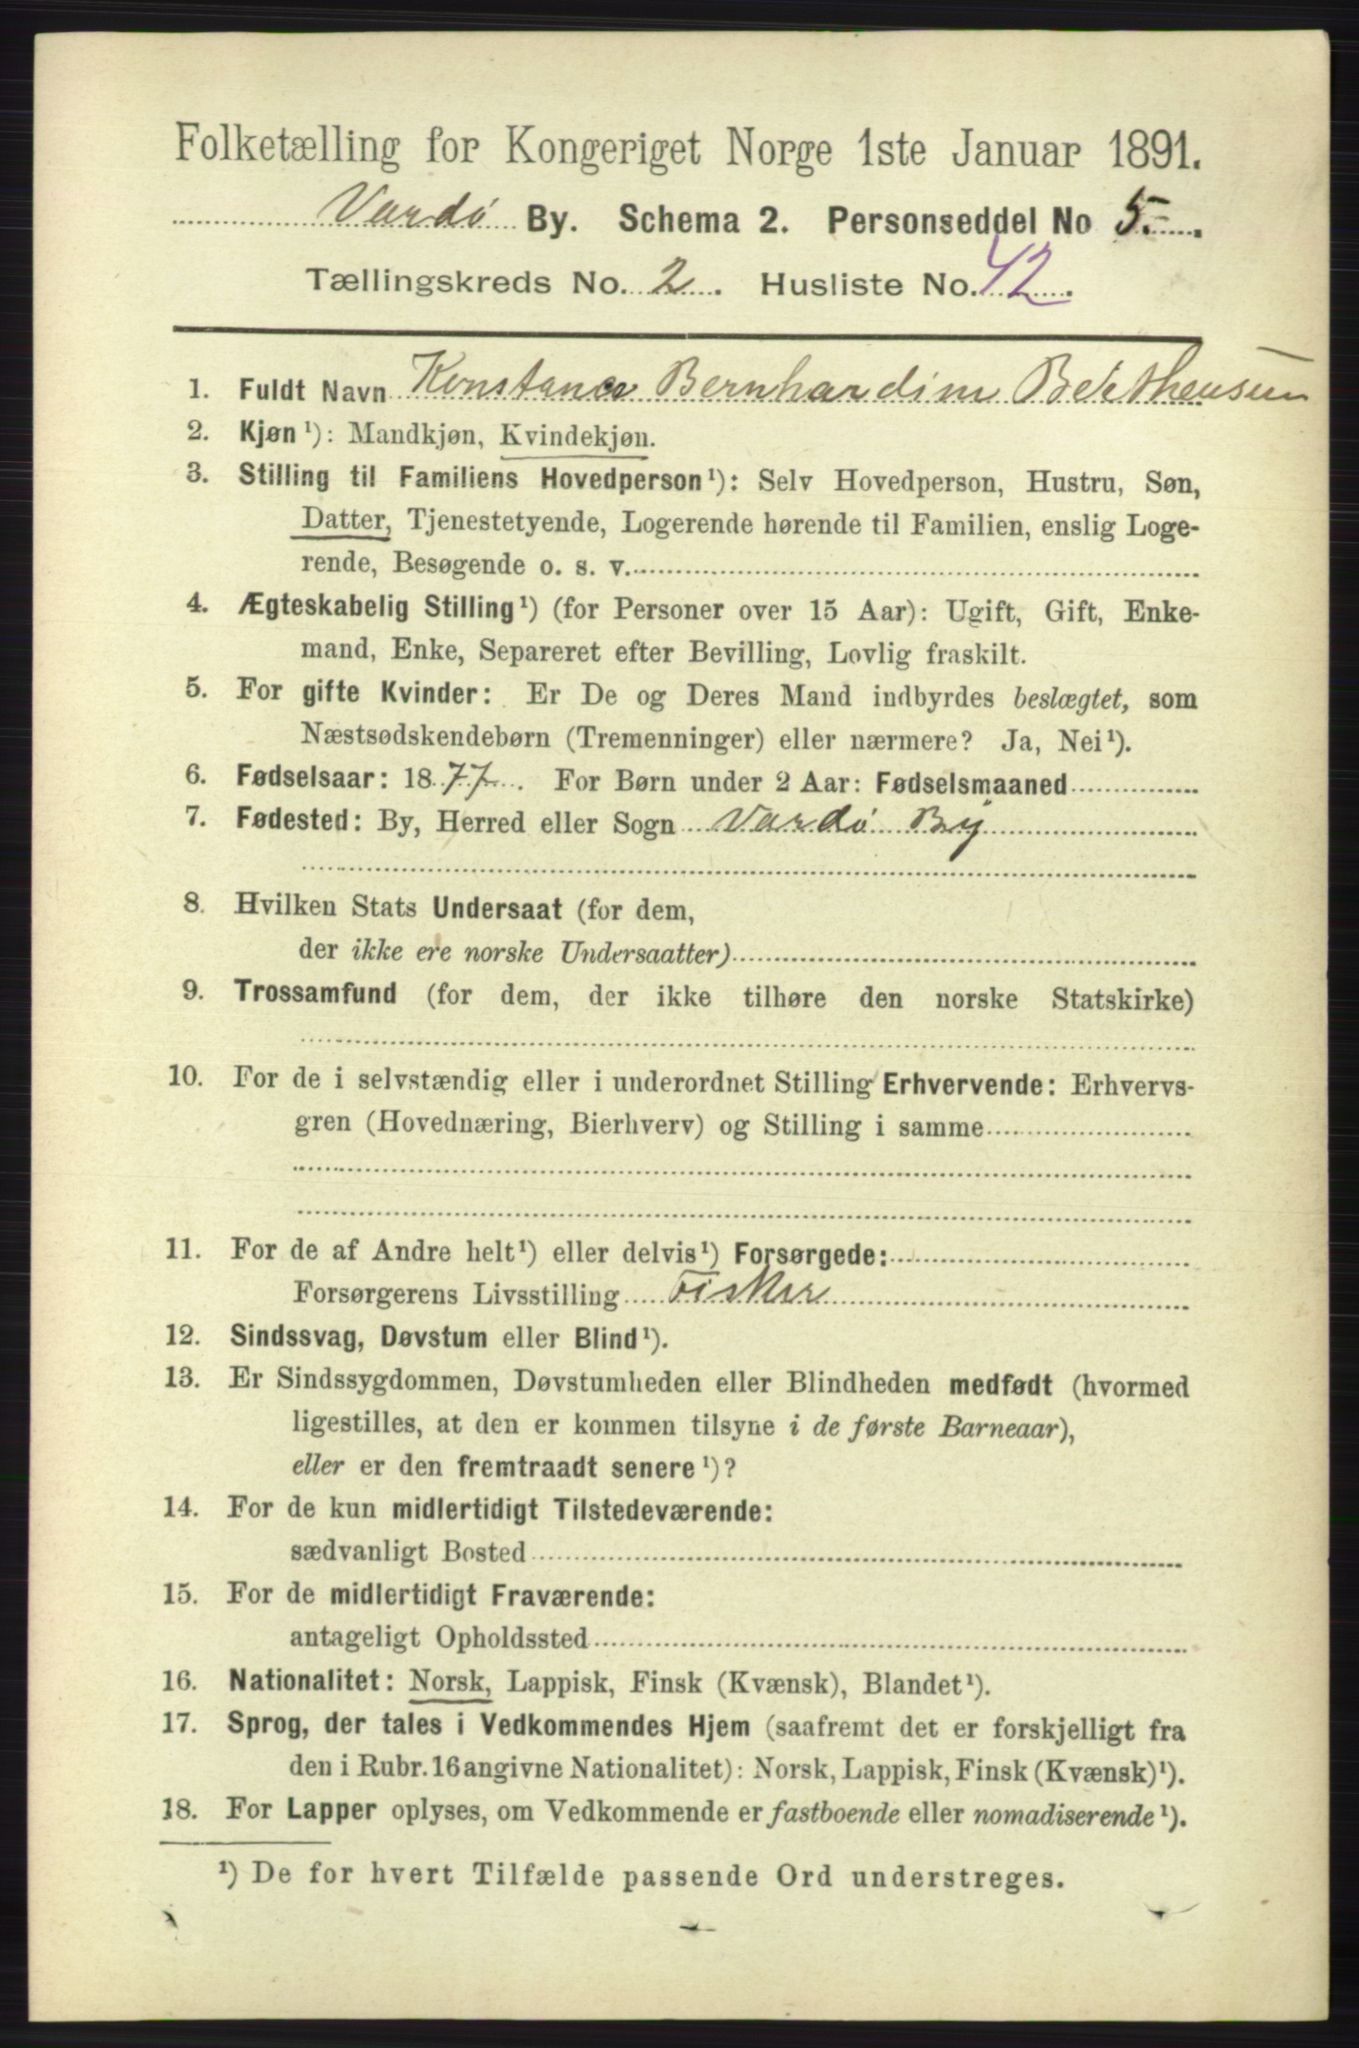 Folketælling for Kongeriget Norge 1ste Januar 1891.
Vardø By. Schema 2. Personseddel No 5.
Tællingskreds No. 2. Husliste No. 42.
1. Fuldt Navn Konstance Bernhardine Bertheusen
2. Kjøn ¹): Mandkjøn, Kvindekjøn.
3. Stilling til Familiens Hovedperson¹): Selv Hovedperson, Hustru, Søn,
Datter, Tjenestetyende, Logerende hørende til Familien, enslig Loge-
rende, Besøgende o. s. v.
4. Ægteskabelig Stilling¹) (for Personer over 15 Aar): Ugift, Gift, Enke-
mand, Enke, Separeret efter Bevilling, Lovlig fraskilt.
5. For gifte Kvinder: Er De og Deres Mand indbyrdes beslægtet, som
Næstsødskendebørn (Tremenninger) eller nærmere? Ja, Nei¹).
6. Fødselsaar: 1877. For Børn under 2 Aar: Fødselsmaaned
7. Fødested: By, Herred eller Sogn Vardø By
8. Hvilken Stats Undersaat (for dem,
der ikke ere norske Undersaatter)
9. Trossamfund (for dem, der ikke tilhøre den norske Statskirke)
10. For de i selvstændig eller i underordnet Stilling Erhvervende: Erhvervs-
gren (Hovednæring, Bierhverv) og Stilling i samme
11. For de af Andre helt¹) eller delvis¹) Forsørgede:
Forsørgerens Livsstilling Fisker
12. Sindssvag, Døvstum eller Blind¹).
13. Er Sindssygdommen, Døvstumheden eller Blindheden medfødt (hvormed
ligestilles, at den er kommen tilsyne i de første Barneaar),
eller er den fremtraadt senere ¹)?
14. For de kun midlertidigt Tilstedeværende:
sædvanligt Bosted
15. For de midlertidigt Fraværende:
antageligt Opholdssted
16. Nationalitet: Norsk, Lappisk, Finsk (Kvænsk), Blandet¹).
17. Sprog, der tales i Vedkommendes Hjem (saafremt det er forskjelligt fra
den i Rubr. 16 angivne Nationalitet): Norsk, Lappisk, Finsk (Kvænsk)¹).
18. For Lapper oplyses, om Vedkommende er fastboende eller nomadiserende¹).
¹) De for hvert Tilfælde passende Ord understreges.